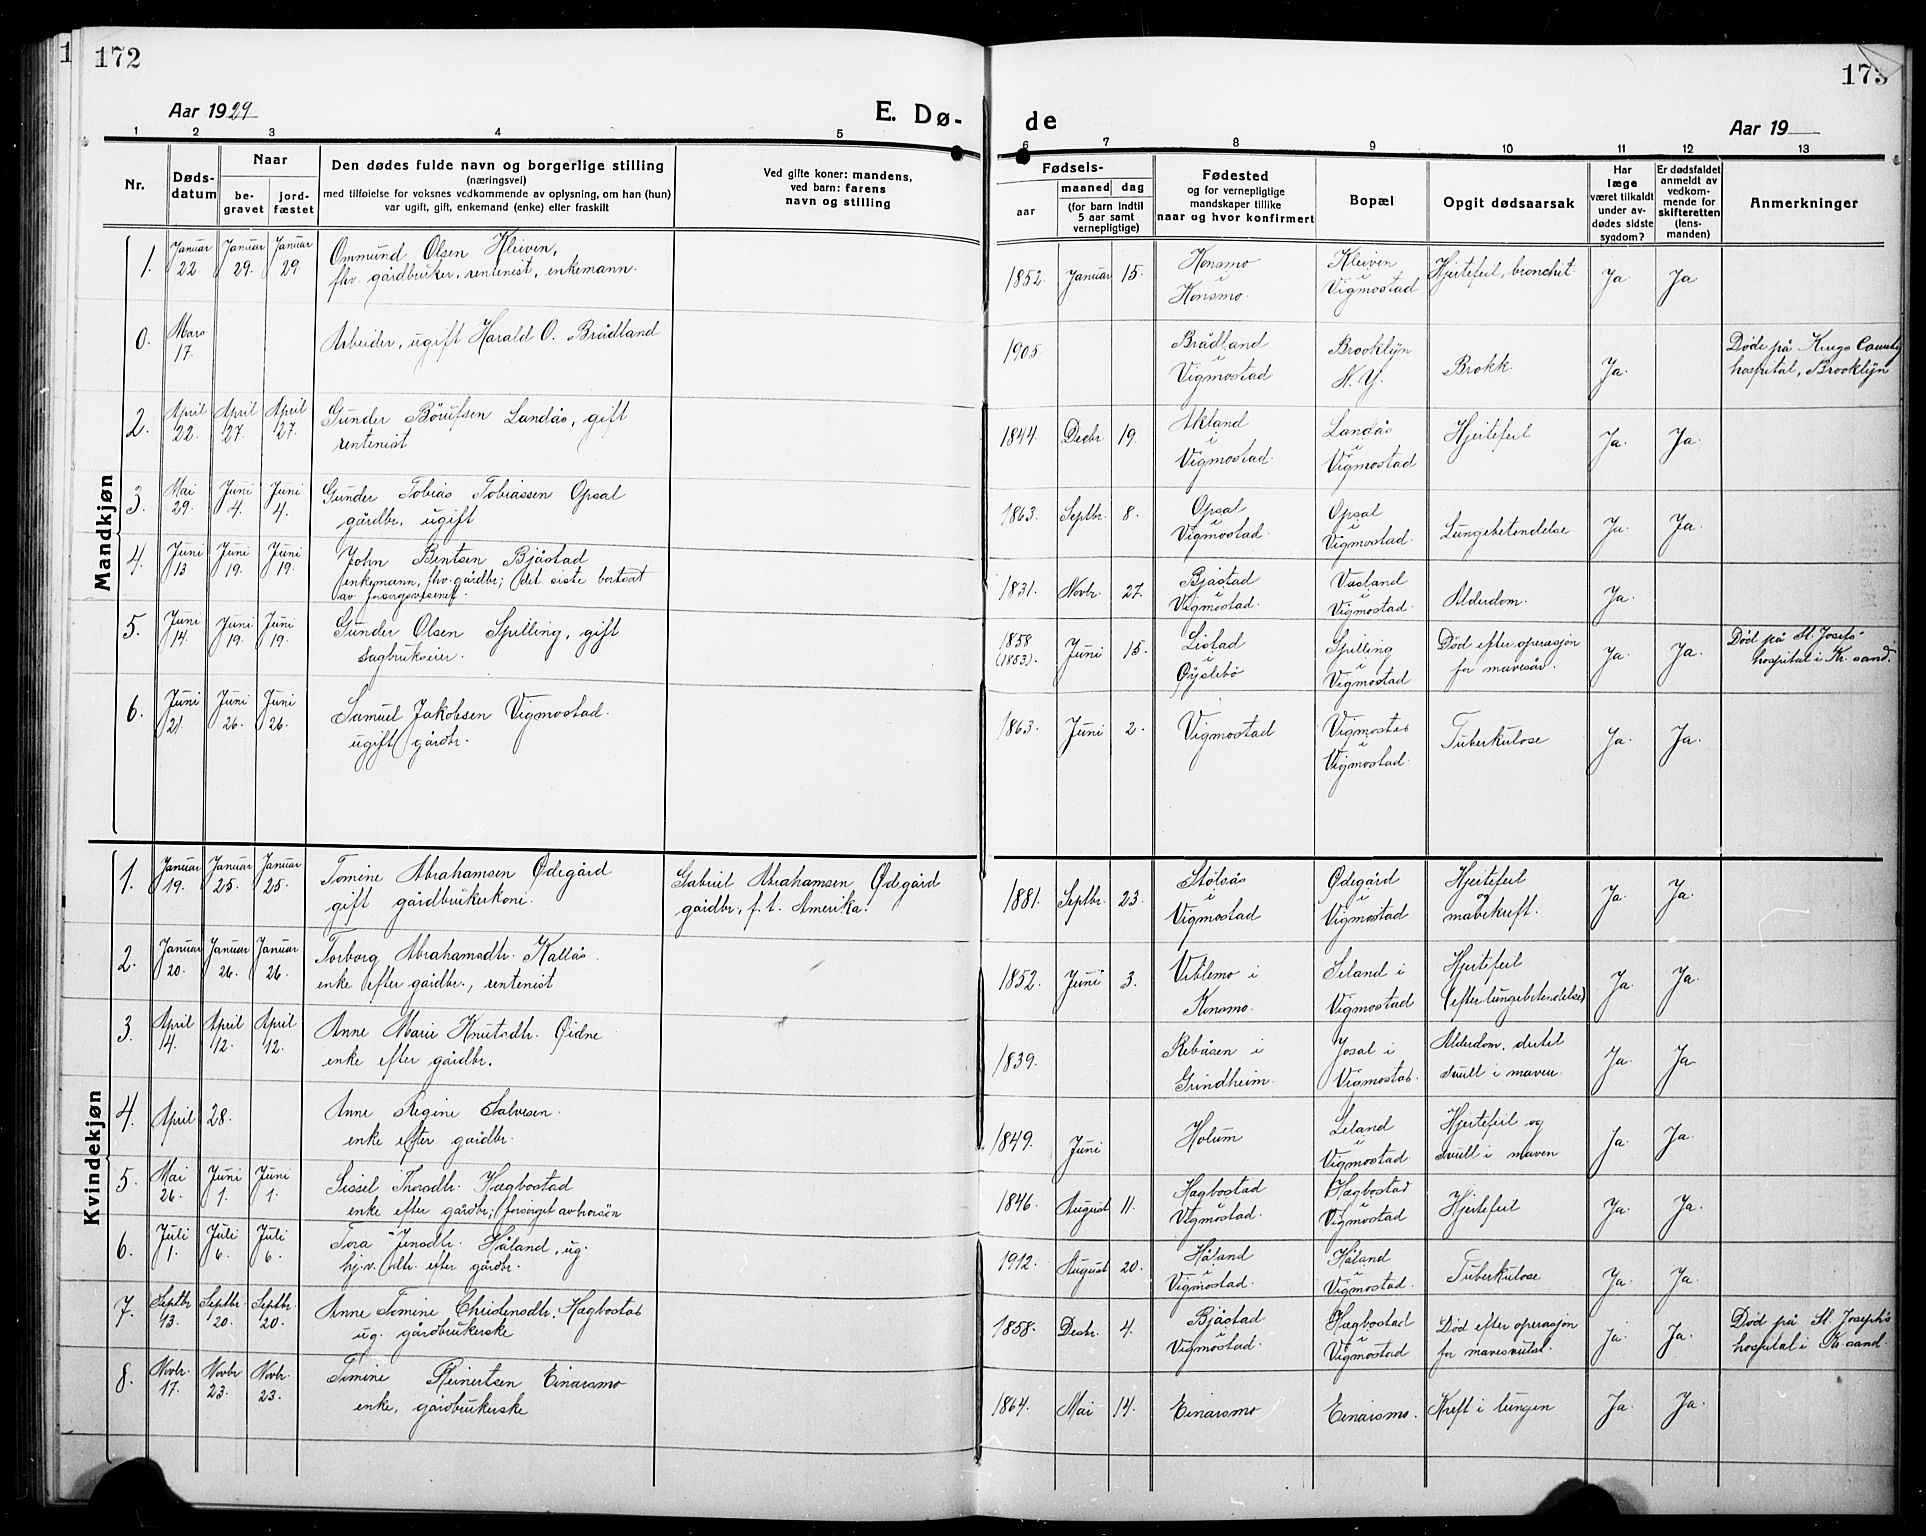 172
Aar 1929
E. Dø-
1 2 3 4 5
Nr.
Døds-
datum
Naar
be-
gravet
jord-
fæstet
Den dødes fulde navn og borgerlige stilling
(næringsvei)
med tilføielse for voksnes vedkommende av oplysning, om han (hun)
var ugift, gift, enkemand (enke) eller fraskilt
Ved gifte koner: mandens,
ved barn: farens
navn og stilling
Mandkjøn
1. Januar 22 Januar 29. Januar 29. Ommund Olsen Kleiven,
fhv. gårdbruker, rentenist, enkemann.
0. Mars 17. Arbeider, ugift Harald O. Brådland
2. April 22. April 27. April 27. Gunder Börufsen Landås, gift
rentenist
3. Mai 29. Juni 4. Juni 4. Gunder Tobias Tobiassen Opsal
gårdbr, ugift
4. Juni 13 Juni 19. Juni 19. John Bentsen Bjåstad
enkemann, fhv. gårdbr; det siste bortsat
av forsorgsvesenet.
5. Juni 14. Juni 19. Juni 19. Gunder Olsen Spilling, gift
sagbrukseier.
6. Juni 21 Juni 26. Juni 26. Samuel Jakobsen Vigmostad.
ugift gårdbr.
Kvindekjøn
1. Januar 19. Januar 25. Januar 25. Tomine Abrahamsen Ødegård
gift gårdbrukerkone.
Gabriel Abrahamsen Ødegård
gårdbr, f. t. Amerika.
2. Januar 20. Januar 26. Januar 26. Torborg Abrahamsdtr. Kallås.
enke efter gårdbr., rentenist
3. April 4. April 12. April 12. Anne Marie Knutsdtr. Øidne
enke efter gårdbr.
4. April 28. Anne Regine Salvesen.
enke efter gårdbr.
5. Mai 26. Juni 1. Juni 1. Sissel Thorsdtr. Hægbostad
enke efter gårdbr; forsørget av
6. Juli 1. Juli 6. Juli 6. Tora Jensdtr. Håland, ug.
hj.v. dtr. efter gårdbr.
7. Septbr 13. Septbr. 20. Septbr. 20. Anne Tomine Christensdtr. Hægbostad
ug. gårdbrukerske
8. Novbr 17. Novbr 23. Novbr. 23. Tomine Reinertsen Einarsmo
enke, gårdbrukerske
173
de
Aar 19
6 7 8 9 10 11 12 13
Fødsels-
aar
maaned dag
(for barn indtil
5 aar samt
vernepligtige)
Fødested
og for vernepligtige
mandskaper tillike
naar og hvor konfirmert
Bopæl
Opgit dødsaarsak
Har
læge
været tilkaldt
under av-
dødes sidste
sygdom?
Er dødsfaldet
anmeldt av
vedkom-
mende for
skifteretten
(lens-
manden)
Anmerkninger
1852. Januar 15. Konsmo i Konsmo. Kleiven i Vigmostad Hjertefeil, bronchit Ja Ja
1905 Brådland i Vigmostad Brooklyn N. Y. Brokk. Ja. Døde på Kings County
hospital, Brooklyn
1844. Decbr. 19. Akland i Vigmostad. Landås i Vigmostad Hjertefeil Ja. Ja.
1863. Septbr. 8. Opsal i Vigmostad. Opsal i Vigmostad. Lungebetendelse Ja Ja.
1831. Novbr. 27. Bjåstad Vigmostad. Vasland i Vigmostad. Alderdom. Ja.
1858
(1853). Juni 15. Listad i Øyslebö Spilling i Vigmostad Död efter operasjon
for mavesår. Ja. Ja. Död på St. Josefs-
hospital i Kr. sand.
1863. Juni 2. Vigmostad Vigmostad i Vigmostad. Tuberkulose Ja. Ja.
1881. Septbr. 23. Stølsås i Vigmostad Ødegård i Vigmostad Hjertefeil
og
mavekreft. Ja. Ja.
1852. Juni 3. Viblemo i Konsmo. Seland i Vigmostad Hjertefeil
(efter lungebetendelse) Ja. Ja.
1839. Rebåsen i Grindheim. Josal i Vigmostad. Alderdom. dertil
svull i maven. Ja. Ja.
1849. Juni Holum Leland i Vigmostad. Hjertefeil og
svull i maven Ja. Ja.
1846. August 11. Hægbostad Vigmostad. Hægbostad i Vigmostad Hjertefeil Ja. Ja.
1912. August 20. Håland i Vigmostad. Håland i Vigmostad. Tuberkulose Ja. Ja.
1858. Desbr. 4. Bjåstad i Vigmostad. Hægbostad i Vigmostad Död efter operasjon
for Ja. Ja. Död på St. Joseph's
hospital i Kr. sand.
1864. Mai 14. Einarsmo Einarsmo. Kreft i lungen Ja. Ja.